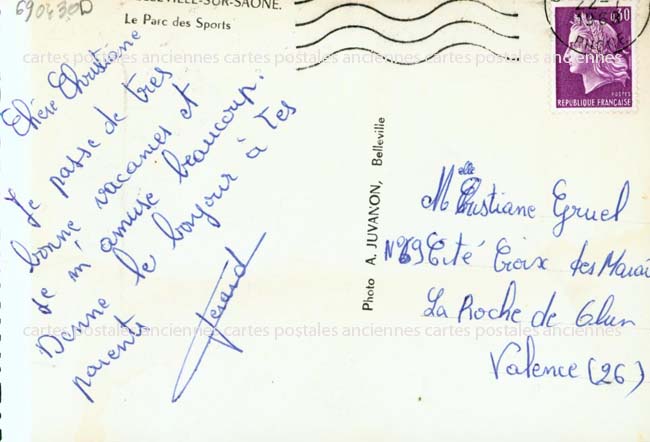 690430D
BELLEVILLE-SUR-SAONE.
Le Parc des Sports
Chère Christiane
Je passe de très
bonne vacances et
je m'amuse beaucoup.
Donne le bonjour à tes
parents
Gérard
Photo A. JUVANON, Belleville
0,30
POSTES
REPUBLIQUE FRANÇAISE
Melle Christiane Gruel
N°69 Cité Croix des Marai
La Roche de Glun
Valence (26)
cartes postales anciennes cartes postales anciennes cartes postales anciennes
cartes postales anciennes cartes postales anciennes cartes postales anciennes